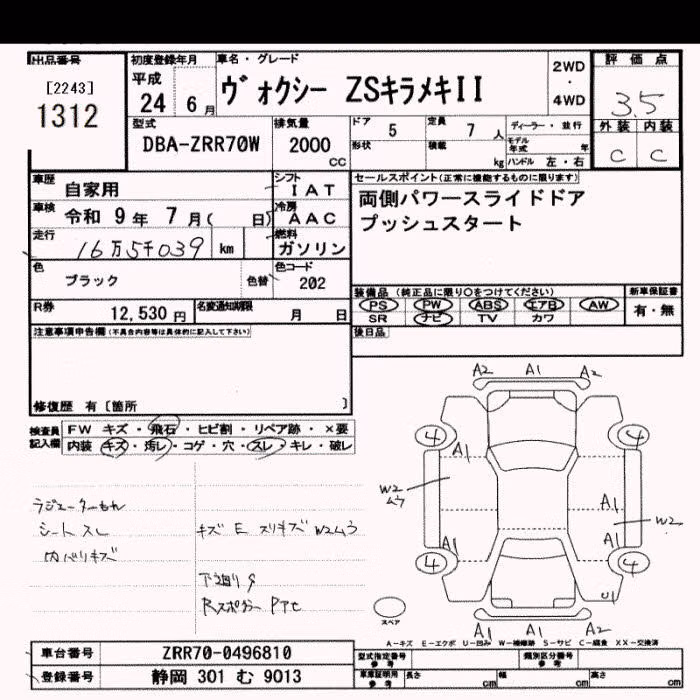 出品番号
[2243]
1312
初度登録年月
平成
24 6月
車名・グレード
ヴォクシー ZSキラメキII
2WD
・
4WD
評価点
3.5
外装 内装
C C
型式
DBA-ZRR70W
排気量
2000
CC
ドア 5
定員 7 人
ディーラー・並行
形状
積載 kg
モデル年式 年
ハンドル 左・右
車歴 自家用
シフト
IAT
車検 令和 9年 7月( 日)
冷房
AAC
走行 16万5千039 km
燃料
ガソリン
色 ブラック 色替
色コード
202
R券 12,530円
名変通知期限 月 日
セールスポイント(正常に機能するものに限ります)
両側パワースライドドア
プッシュスタート
装備品(純正品に限り○をつけてください)
PS PW ABS エアB AW
SR ナビ TV カワ
新車保証書
有・無
後日品
注意事項申告欄(不具合内容等は具体的に記入して下さい)
修復歴 有[箇所 ]
検査員記入欄
FW キズ・飛石・ヒビ割・リペア跡・×要
内装 キズ・汚レ・コゲ・穴・スレ・キレ・破レ
ラジエーターもれ
シートスレ
内ハリキズ
キズ E スリキズ W2ムラ
下廻りS
Rスポイラー
A2 A1 A2
4 4
A1
W2
ムラ
A1
W2
A1 A1
4 4
U1
A1 A1 A1
スペア
A-キズ E-エクボ U-凹み W-補修跡 S-サビ C-腐食 XX-交換済
車台番号 ZRR70-0496810
登録番号 静岡 301 む 9013
型式指定番号
参考
類別区分番号
参考
車庫証明用
参考
長さ cm 幅 cm 高さ cm